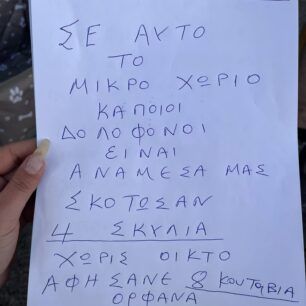 ΣΕ ΑΥΤΟ
ΤΟ
ΜΙΚΡΟ ΧΩΡΙΟ
ΚΑΠΟΙΟΙ
ΔΟΛΟΦΟΝΟΙ
ΕΙΝΑΙ
ΑΝΑΜΕΣΑ ΜΑΣ
ΣΚΟΤΩΣΑΝ
4 ΣΚΥΛΙΑ
ΧΩΡΙΣ ΟΙΚΤΟ
ΑΦΗΣΑΝΕ 8 ΚΟΥΤΑΒΙΑ
ΟΡΦΑΝΑ